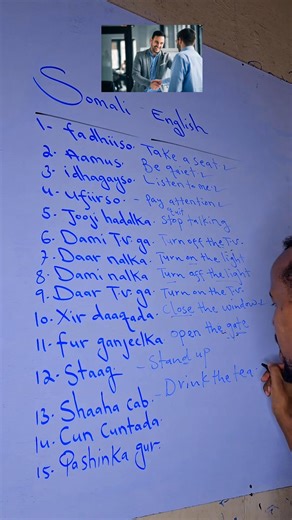 Somali English
1- fadhiiso. Take a seat
2. Aamus. Be quiet
3. idhagayso. Listen to me
4. ufiirso. - pay attention
quit
5. Jooji hadalka. stop talking
6. Dami Tv.ga. Turn off the Tv.
7. Daar nalka. Turn on the light
8. Dami nalka Turn off the light
9. Daar Tv.ga. Turn on the Tv.
10. Xir daaqada. Close the window
11. fur ganjeelka open the gate
12. Staag - Stand up
13. Shaaha cab. - Drink the tea.
14. Cun Cuntada.
15. Qashinka gur.